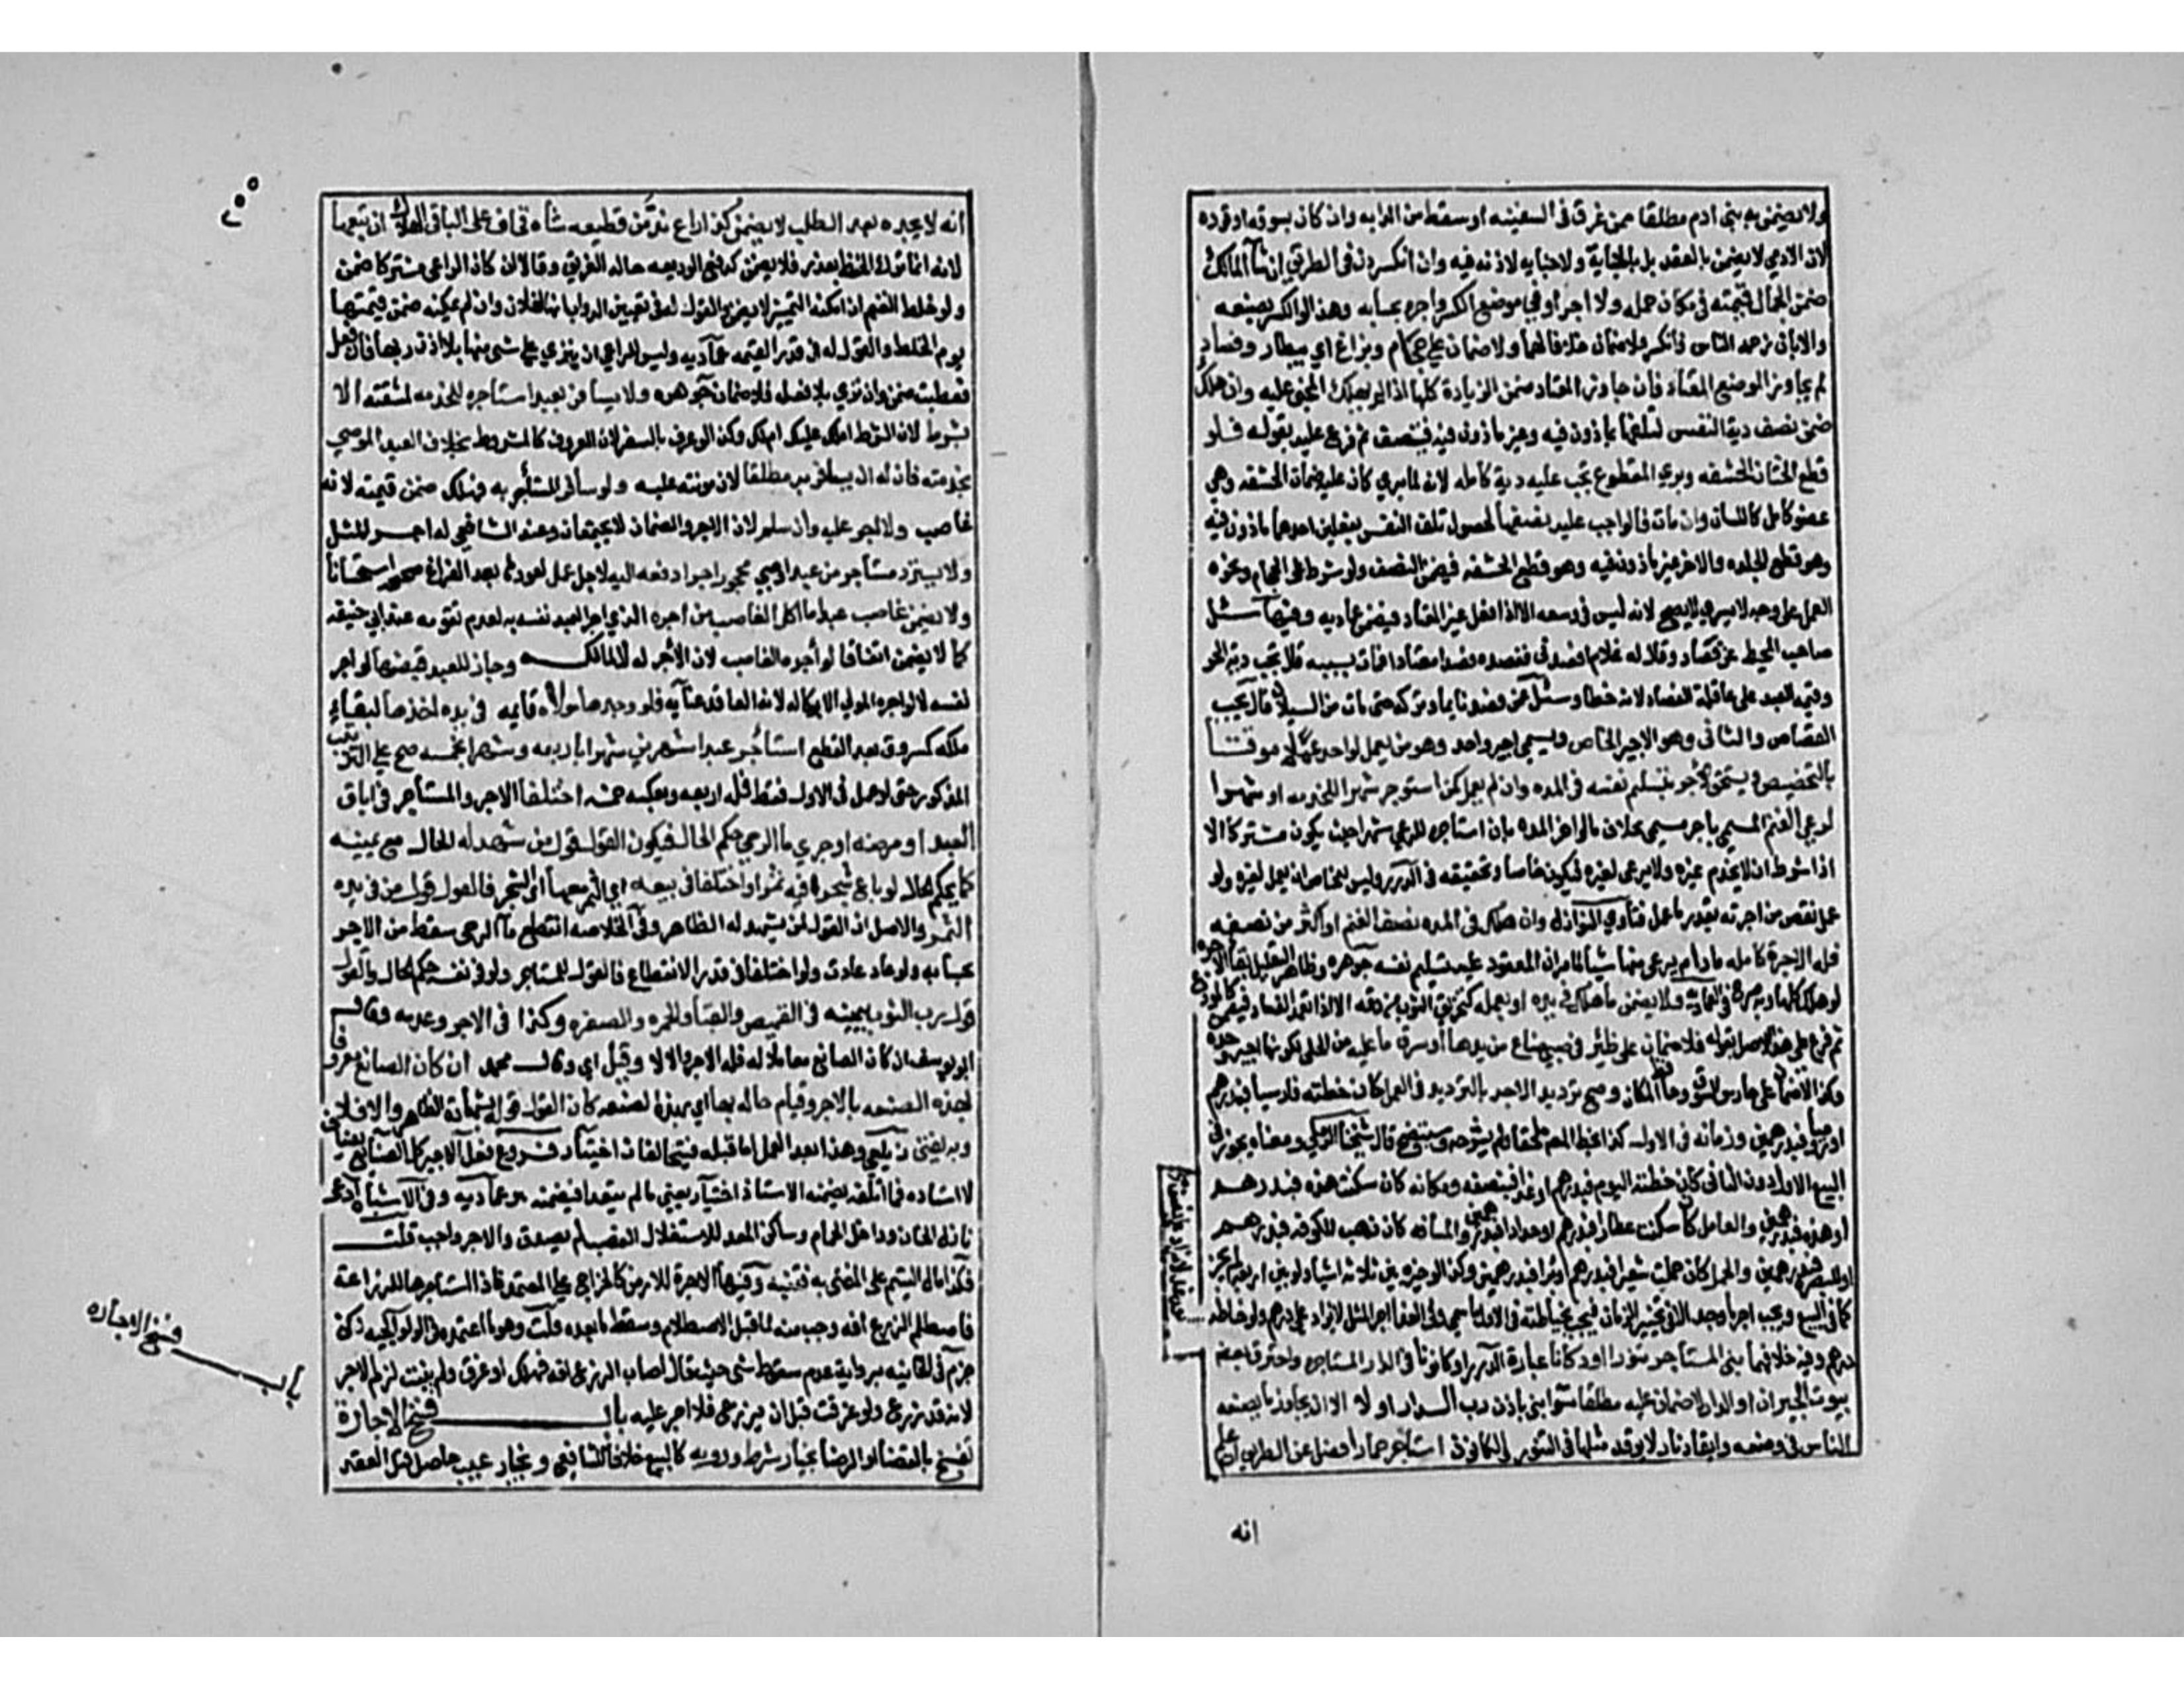 ولا يضمن به بني ادم مطلقا ممن غرق في السفينه او سقط من الدابه وان كان بسوقه او قوده
لان الادمي لا يضمن بالعقد بل بالجناية ولا جنايه لاذنه فيه وان انكسر دن في الطريق ان شآ المالك
ضمن الحمال قيمته في مكان حمله ولا اجر او في موضع الكسر واجره بحسابه وهذا لو انكسر بصنعه
والا بان زحمه الناس فانكسر فلا ضمان خلافا لهما ولا ضمان علي حجام وبزاغ اي بيطار وفصاد
لم يجاوز الموضع المعتاد فان جاوز المعتاد ضمن الزيادة كلها اذا لم يهلك المجني عليه وان هلك
ضمن نصف دية النفس لتلفها بماذون فيه وغير ماذون فيه فيتنصف ثم فرع عليه بقوله فلو
قطع الختان الحشفه وبري المقطوع تجب عليه دية كامله لانه لما بري كان عليه ضمان الحشفه وهي
عضو كامل كاللسان وان مات فالواجب عليه نصفها لحصول تلف النفس بفعلين احدهما ماذون فيه
وهو قطع الجلده والاخر غير ماذون فيه وهو قطع الحشفه فيضمن النصف ولو شرط على الحجام ونحوه
العمل على وجه لا يسري لا يصح لانه ليس في وسعه الا اذا فعل غير المعتاد فيضمن عماديه وفيها سئل
صاحب المحيط عن فصاد وقال له غلام افصدني ففصده فصدا معتادا فمات بسببه قال تجب دية الحر
وقيمة العبد على عاقلة الفصاد لانه خطا وسئل عمن فصد نايما وتركه حتى مات من السيلان قال يجب
القصاص والثاني وهو الاجير الخاص ويسمي اجير واحد وهو من يعمل لواحد عملا موقتا
بالتخصيص ويستحق الاجر بتسليم نفسه في المده وان لم يعمل كمن استوجر شهرا للخدمه او شهرا
لرعي الغنم المسمي باجر مسمي بخلاف ما لو اخر المده بان استاجره للرعي شهرا حيث يكون مشتركا الا
اذا شرط ان لا يخدم غيره ولا يرعى لغيره فيكون خاصا وتحقيقه في الدرر وليس للخاص ان يعمل لغيره ولو
عمل نقص من اجرته بقدر ما عمل فتاوي النوازل وان هلك في المده نصف الغنم او اكثر من نصفه
فله الاجرة كامله ما دام يرعى منها شيا لما مر ان المعقود عليه تسليم نفسه جوهره وظاهر التعليل بقا الاجره
لو هلك كلها وبه صرح في العماديه ولا يضمن ما هلك في يده او بعمله كتخريق الثوب من دقه الا اذا تعمد الفساد فيضمن كالمودع
ثم فرع على هذا الاصل بقوله فلا ضمان على ظئر في صبي ضاع من يدها او سرق ما عليه من الحلي لكونها اجير وحده
وكذا لا ضمان على حارس السوق وحافظ المكان وصح ترديد الاجر بالترديد في العمل كان خطته فارسيا فبدرهم
او روميا فبدرهمين وزمانه في الاول كذا بخط المصنف ملحقا ولم يشرحه وسيتضح قال شيخنا الرملي ومعناه يجوز في
اليوم الاول دون الثاني كان خطته اليوم فبدرهم او غدا فبنصفه ومكانه كان سكنت هذه فبدرهم
او هذه فبدرهمين والعامل كان سكنت عطارا فبدرهم او حدادا فبدرهمين والمسافه كان ذهبت للكوفه فبدرهم
او للبصره فبدرهمين والحمل كان حملت شعيرا فبدرهم او برا فبدرهمين وكذا لو خيره بين ثلاثة اشيا ولو بين اربعه لم يجز
كما في البيع ويجب اجر ما وجد الا في تخيير الزمان فيجب بخياطته في الاول ما سمي وفي الغد اجر المثل لا يزاد على درهم ولو خاطه
درهم وفيه خلافهما بنى المستاجر تنورا او دكانا عبارة الدرر او كانونا في الدار المستاجره واحترق بعض
بيوت الجيران او الدار لا ضمان عليه مطلقا سوا بنى باذن رب الدار او لا الا ان يجاوز ما يصنعه
الناس في وضعه وايقاد نار لا يوقد مثلها في التنور والكانون استاجر حمارا فضل عن الطريق ان علم
انه
٢٥٥
انه لا يجده بعد الطلب لا يضمن كذا راع ند من قطيعه شاه فخاف على الباقي الهلاك ان تبعها
لانه انما ترك الحفظ بعذر فلا يضمن كدفع الوديعه حال الغرق وقالا ان كان الراعي مشتركا ضمن
ولو خلط الغنم ان امكنه التمييز لا يضمن والقول له في تعيين الدواب انها لفلان وان لم يمكنه ضمن قيمتها
يوم الخلط والقول له في قدر القيمه عماديه وليس للراعي ان ينزي على شي منها بلا اذن ربها فان فعل
فعطبت ضمن وان نزى بلا فعله فلا ضمان جوهره ولا يسافر بعبد استاجره للخدمه لمشقته الا
بشرط لان الشرط املك عليك ام لك وكذا لو عرف بالسفر لان المعروف كالمشروط بخلاف العبد الموصي
بخدمته فان له ان يسافر به مطلقا لان مونته عليه ولو سافر المستاجر به فهلك ضمن قيمته لانه
غاصب ولا اجر عليه وان سلم لان الاجر والضمان لا يجتمعان وعند الشافعي له اجر المثل
ولا يسترد مستاجر من عبد او صبي محجور اجرا دفعه اليه لاجل عمل لعوده بعد الفراغ صحيح استحسانا
ولا يضمن غاصب عبد ما اكل الغاصب من اجره الذي اجر العبد نفسه به لعدم تقومه عند ابي حنيفه
كما لا يضمن اتفاقا لو أجره الغاصب لان الأجر له لا للمالك وجاز للعبد قبضها لو اجر
نفسه لا لو اجره المولي الا بوكاله لانه العاقد عنآيه فلو وجدها مولاه قايمه في يده اخذها لبقاء
ملكه كمسروق بعد القطع استأجر عبدا شهرين شهرا باربعه وشهرا بخمسه صح علي الترتيب
المذكور حتى لو عمل في الاول فقط فله اربعه وبعكسه خمسه اختلفا الاجر والمستاجر في اباق
العبد او مرضه او جري ماالرحى حكم الحال فيكون القول قول من شهد له الحال مع يمينه
كما يحكم الحال لو باع شجرا فيه ثمر واختلفا في بيعه اي الثمر معها اي الشجر فالقول قول من في يده
الثمر والاصل ان القول لمن يشهد له الظاهر وفي الخلاصه انقطع ماآلرحى سقط من الاجر
بحسابه ولو عاد عادت ولو اختلفا في قدر الانقطاع فالقول للمستاجر ولو في نفسه حكم الحال والقول
قول رب الثوب بيمينه في القميص والقبا والحمره والصفره وكذا في الاجر وعدمه وقال
ابو يوسف ان كان الصانع معاملا له فله الاجر والا لا وقيل اي وقال محمد ان كان الصانع معروفا
بهذه الصنعه بالاجر وقيام حاله بها اي بهذه الصنعه كان القول قوله بشهادة الظاهر والا فلا
وبه يفتى زيلعي وهذا بعد العمل اما قبله فيتحالفان اختيار فروع فعل الاجير في كل الصنآيع يضاف
لاستاذه فما اتلفه يضمنه الاستاذ اختيار يعني ما لم يتعد فيضمنه هو عماديه وفي الاشباه ادعى
نازل الخان وداخل الحمام وساكن المعد للاستغلال الغصب لم يصدق والاجر واجب قلت
فكذا مال اليتيم على المفتى به فتنبه وفيها الاجرة للارض كالخراج على المعتمد فاذا استاجرها للزراعة
فاصطلم الزرع افه وجب منه لما قبل الاصطلام وسقط ما بعده قلت وهو ما اعتمده في الولوالجيه لكن
جزم في الخانيه برواية عدم سقوط شي حيث قال اصاب الزرع افه فهلك او غرق ولم ينبت لزم الاجر
لانه قد زرع ولو غرقت قبل ان يزرع فلا اجر عليه باب فسخ الاجارة
تفسخ بالقضا او الرضا بخيار شرط ورويه كالبيع خلافا للشافعي وبخيار عيب حاصل قبل العقد
باب فسخ الاجاره